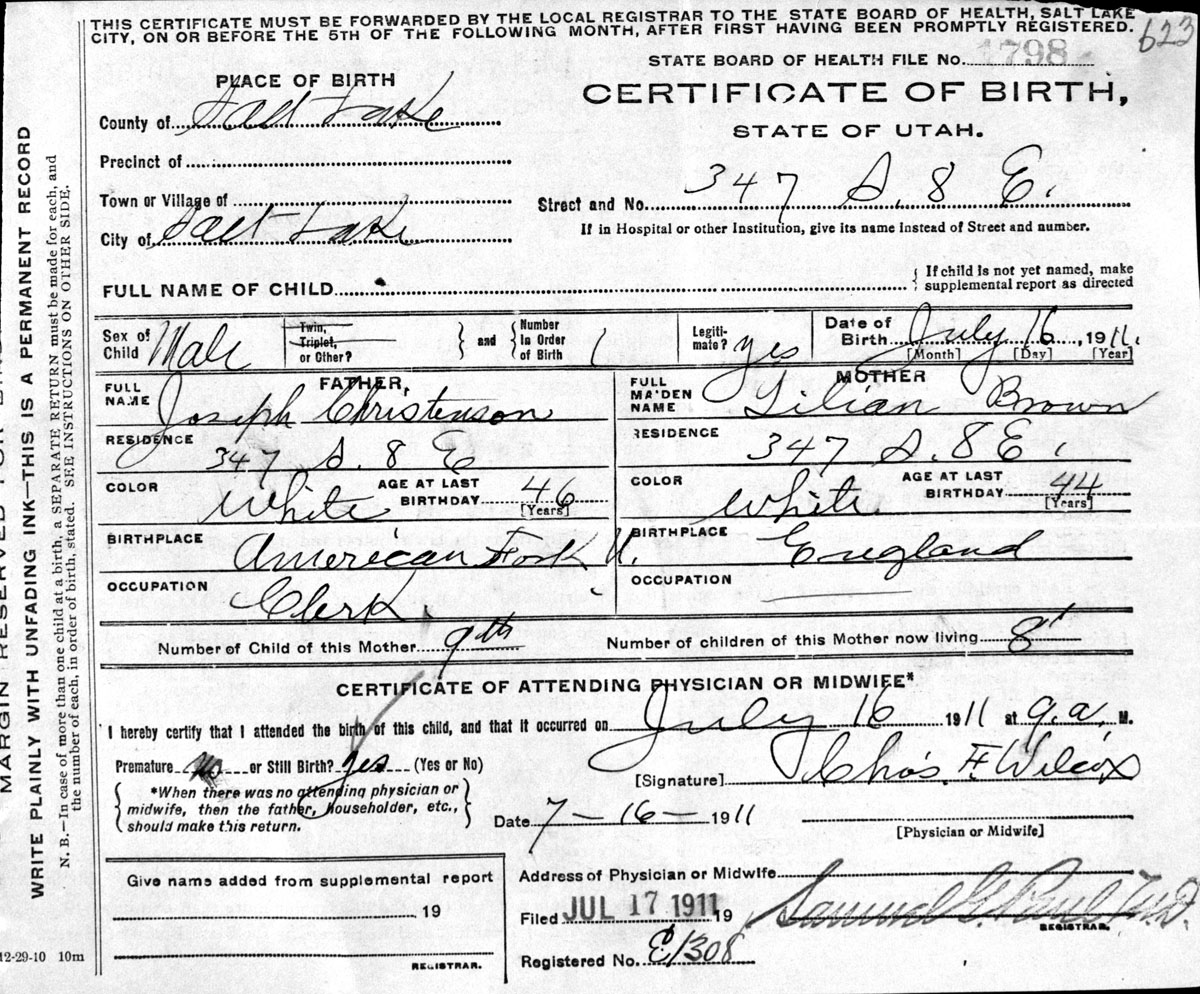 THIS CERTIFICATE MUST BE FORWARDED BY THE LOCAL REGISTRAR TO THE STATE BOARD OF HEALTH, SALT LAKE
CITY, ON OR BEFORE THE 5TH OF THE FOLLOWING MONTH, AFTER FIRST HAVING BEEN PROMPTLY REGISTERED.
623
STATE BOARD OF HEALTH FILE NO. 1798
PLACE OF BIRTH
CERTIFICATE OF BIRTH,
STATE OF UTAH.
County of Salt Lake
Precinct of
Town or Village of
City of Salt Lake
Street and No. 347 S. 8 E.
If in Hospital or other Institution, give its name instead of Street and number.
FULL NAME OF CHILD
If child is not yet named, make
supplemental report as directed
Sex of Child Male
Twin,
Triplet,
or Other?
and
Number
In Order
of Birth 1
Legiti-
mate? yes
Date of
Birth July 16, 1911.
[Month] [Day] [Year]
FATHER,
FULL NAME Joseph Christenson
RESIDENCE 347 S. 8 E
COLOR White
AGE AT LAST BIRTHDAY 46 [Years]
BIRTHPLACE American Fork U.
OCCUPATION Clerk
MOTHER
FULL MAIDEN NAME Lilian Brown
RESIDENCE 347 S. 8 E.
COLOR White
AGE AT LAST BIRTHDAY 44 [Years]
BIRTHPLACE England
OCCUPATION
Number of Child of this Mother 9th
Number of children of this Mother now living 8
CERTIFICATE OF ATTENDING PHYSICIAN OR MIDWIFE*
I hereby certify that I attended the birth of this child, and that it occurred on July 16 1911 at 9 a. M.
Premature no or Still Birth? yes (Yes or No)
[Signature] Chas. F. Wilcox
*When there was no attending physician or
midwife, then the father, householder, etc.,
should make this return.
Date 7-16-1911
[Physician or Midwife]
Give name added from supplemental report
19
REGISTRAR.
Address of Physician or Midwife
Filed JUL 17 1911 19
Samuel G. Paul M.D.
REGISTRAR.
Registered No. E1308
12-29-10 10m
MARGIN RESERVED FOR
WRITE PLAINLY WITH UNFADING INK—THIS IS A PERMANENT RECORD
N. B.—In case of more than one child at a birth, a SEPARATE RETURN must be made for each, and
the number of each, in order of birth, stated. SEE INSTRUCTIONS ON OTHER SIDE.